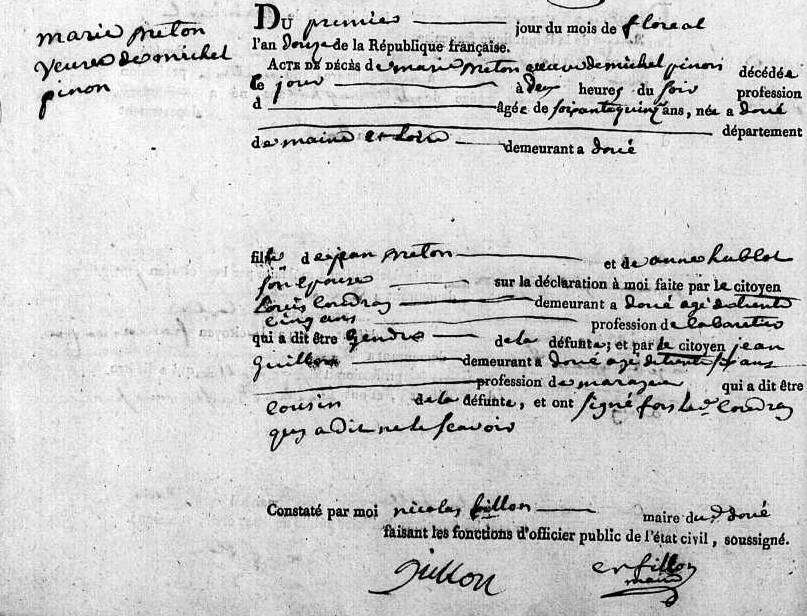 marie breton
veuve de michel
pinon
DU premier jour du mois de floreal
l'an douze de la République française.
ACTE DE DÉCÈS de marie breton veuve de michel pinon décédée
le jour à deux heures du soir profession
d agée de soixantequinze ans, née a doué
département
de maine et loire demeurant a doué
fille de jean breton et de anne hublot
son epouse sur la déclaration à moi faite par le citoyen
Louis Coudray demeurant a doué agé de trente
cinq ans profession de cabaretier
qui a dit être gendre de la défunte; et par le citoyen jean
demeurant à doué agé de trente six ans
profession de qui a dit être
cousin de la défunte, et ont signé fors led. Coudray
qui a dit ne le scavoir
Constaté par moi nicolas fillon maire du d. doué
faisant les fonctions d'officier public de l'état civil, soussigné.
fillon
maire